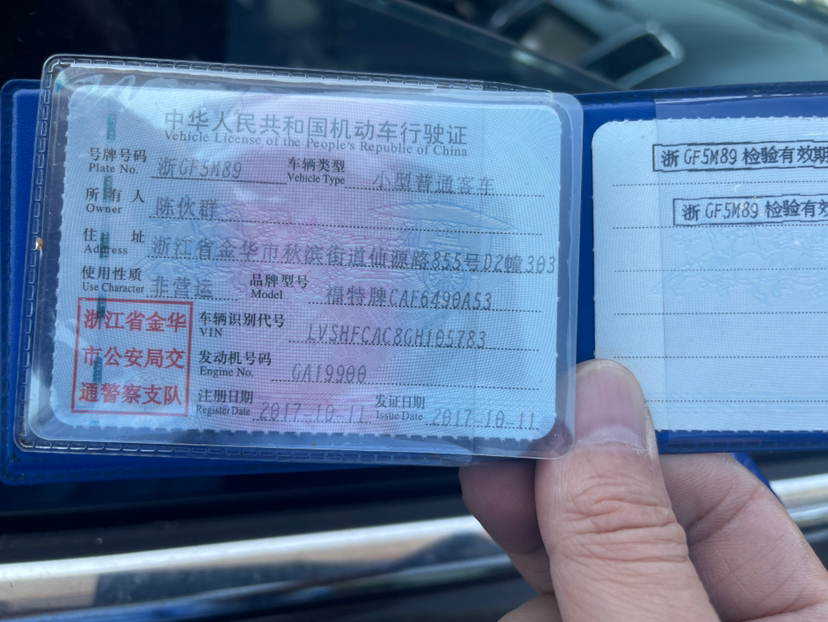 中华人民共和国机动车行驶证
Vehicle License of the People's Republic of China
号牌号码 浙GF5M89 车辆类型 小型普通客车
Plate No. Vehicle Type
所有人 陈伙群
Owner
住址 浙江省金华市秋滨街道仙源路855号D2幢303
Address
使用性质 非营运 品牌型号 福特牌CAF6490A53
Use Character Model
浙江省金华
市公安局交
通警察支队
车辆识别代号 LVSHFCAC8GH105783
VIN
发动机号码 GA19900
Engine No.
注册日期 2017-10-11 发证日期 2017-10-11
Register Date Issue Date
浙GF5M89 检验有效期
浙GF5M89 检验有效